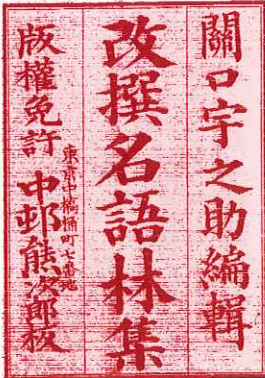 關口宇之助編輯
改撰名語林集
版權免許
東京中橋桶町七番地
中邨熊次郎板